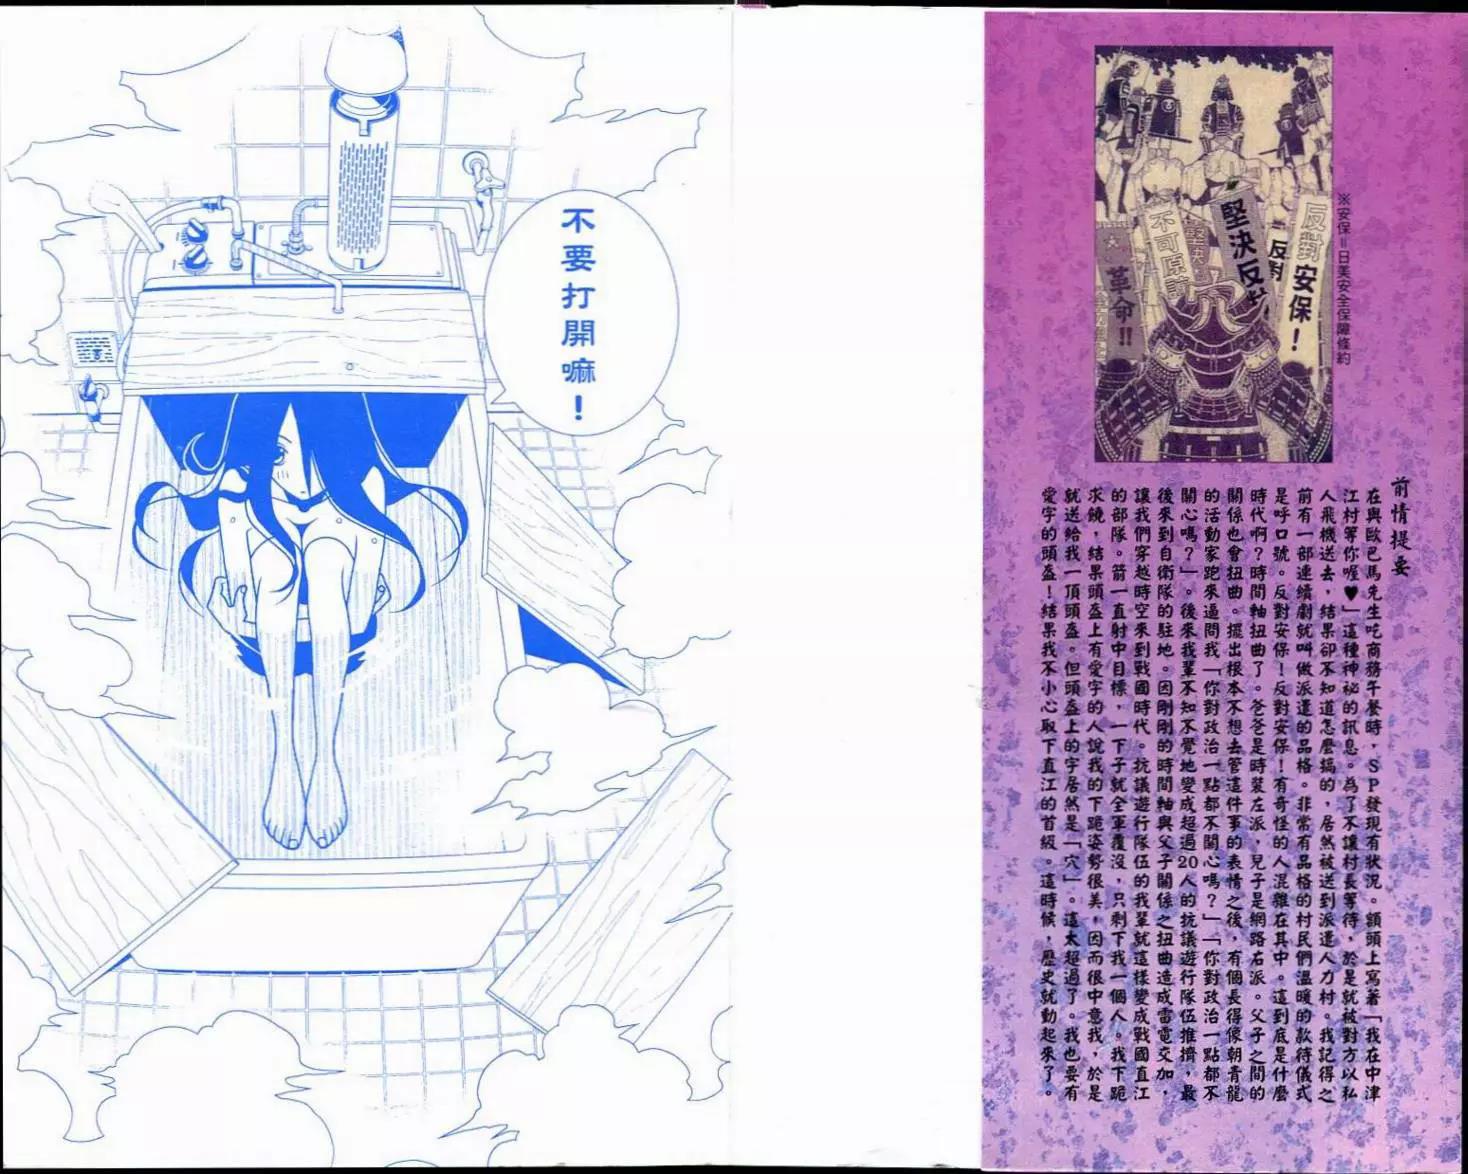 不要打開嘛！
※安保＝日美安全保障條約
反對安保！
反對
堅決反對
堅決
不可原諒
革命!!
前情提要
在與歐巴馬先生吃商務午餐時，SP發現有狀況。額頭上寫著「我在中津
江村等你喔♥」這種神祕的訊息。為了不讓村長等待，於是就被對方以私
人飛機送去，結果卻不知道怎麼搞的，居然被送到派遣人刀村。我記得之
前有一部連續劇就叫做派遣的品格。非常有品格的村民們溫暖的款待儀式
是呼口號。反對安保！反對安保！有奇怪的人混雜在其中。這到底是什麼
時代啊？時間軸扭曲了。爸爸是時裝左派，兒子是網路右派。父子之間的
關係也會扭曲。擺出根本不想去管這件事的表情之後，有個長得像朝青龍
的活動家跑來逼問我「你對政治一點都不關心嗎？」「你對政治一點都不
關心嗎？」。後來我輩不知不覺地變成超過20人的抗議遊行隊伍推擠，最
後來到自衛隊的駐地。因剛剛的時間軸與父子關係之扭曲造成雷電交加，
讓我們穿越時空來到戰國時代。抗議遊行隊伍的我輩就這樣變成戰國直江
的部隊。箭一直射中目標，一下子就全軍覆沒，只剩下我一個人。我下跪
求饒，結果頭盔上有愛字的人說我的下跪姿勢很美，因而很中意我，於是
就送給我一頂頭盔。但頭盔上的字居然是「穴」。這太超過了。我也要有
愛字的頭盔！結果我不小心取下直江的首級。這時候，歷史就動起來了。